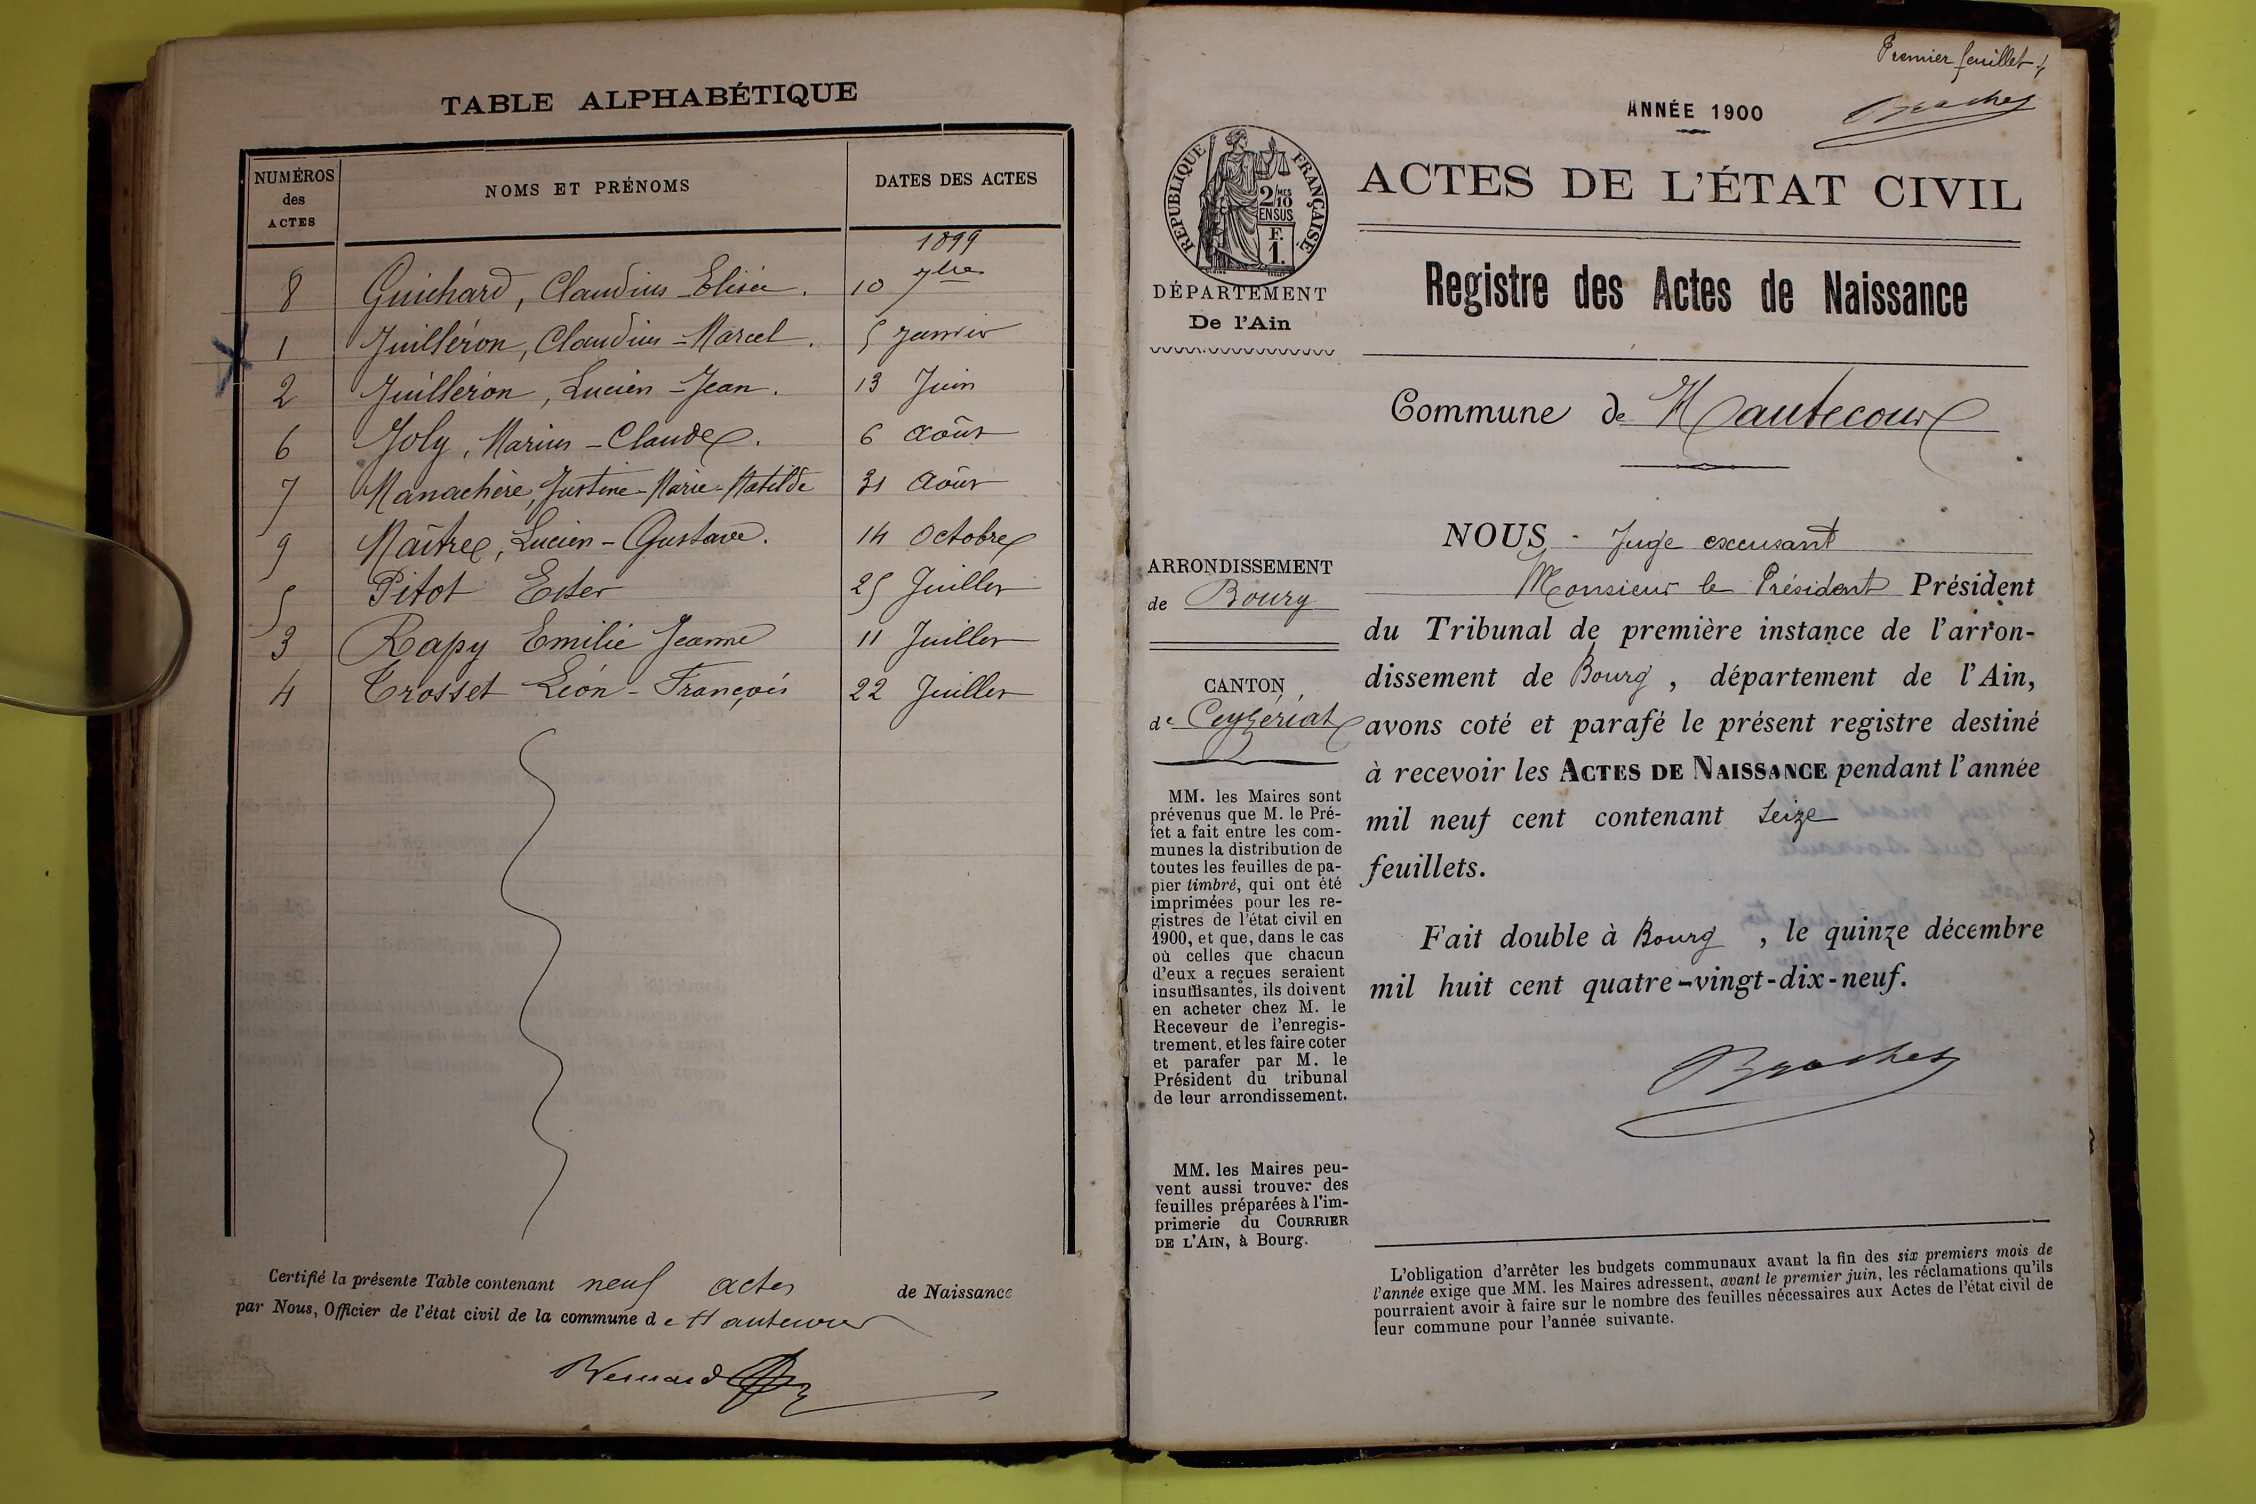 TABLE ALPHABÉTIQUE
NUMÉROS des ACTES
NOMS ET PRÉNOMS
DATES DES ACTES
1899
8 Guichard, Claudius-Elisée. 10 7bre
1 Juilléron, Claudius-Marcel. 5 Janvier
2 Juilléron, Lucien-Jean. 13 Juin
6 Joly, Marius-Claude. 6 Août
7 Manachère, Justine-Marie-Matilde 31 Août
9 Maître, Lucien-Gustave. 14 Octobre
5 Pitot Ester 25 Juillet
3 Rapy Emilie Jeanne 11 Juillet
4 Trosset Léon-François 22 Juillet
Certifié la présente Table contenant neuf actes de Naissance
par Nous, Officier de l'état civil de la commune de Hautecour
Bernard
Premier feuillet
Brachet
ANNÉE 1900
RÉPUBLIQUE FRANÇAISE
2/10 MES
EN SUS
F.
1.
ACTES DE L'ÉTAT CIVIL
Registre des Actes de Naissance
DÉPARTEMENT
De l'Ain
Commune de Hautecour
ARRONDISSEMENT
de Bourg
CANTON
de Ceyzériat
MM. les Maires sont
prévenus que M. le Pré-
fet a fait entre les com-
munes la distribution de
toutes les feuilles de pa-
pier timbré, qui ont été
imprimées pour les re-
gistres de l'état civil en
1900, et que, dans le cas
où celles que chacun
d'eux a reçues seraient
insuffisantes, ils doivent
en acheter chez M. le
Receveur de l'enregis-
trement, et les faire coter
et parafer par M. le
Président du tribunal
de leur arrondissement.
MM. les Maires peu-
vent aussi trouver des
feuilles préparées à l'im-
primerie du COURRIER
DE L'AIN, à Bourg.
NOUS - Juge excusant
Monsieur le Président Président
du Tribunal de première instance de l'arron-
dissement de Bourg, département de l'Ain,
avons coté et parafé le présent registre destiné
à recevoir les ACTES DE NAISSANCE pendant l'année
mil neuf cent contenant Seize
feuillets.
Fait double à Bourg, le quinze décembre
mil huit cent quatre-vingt-dix-neuf.
Brachet
L'obligation d'arrêter les budgets communaux avant la fin des six premiers mois de
l'année exige que MM. les Maires adressent, avant le premier juin, les réclamations qu'ils
pourraient avoir à faire sur le nombre des feuilles nécessaires aux Actes de l'état civil de
leur commune pour l'année suivante.